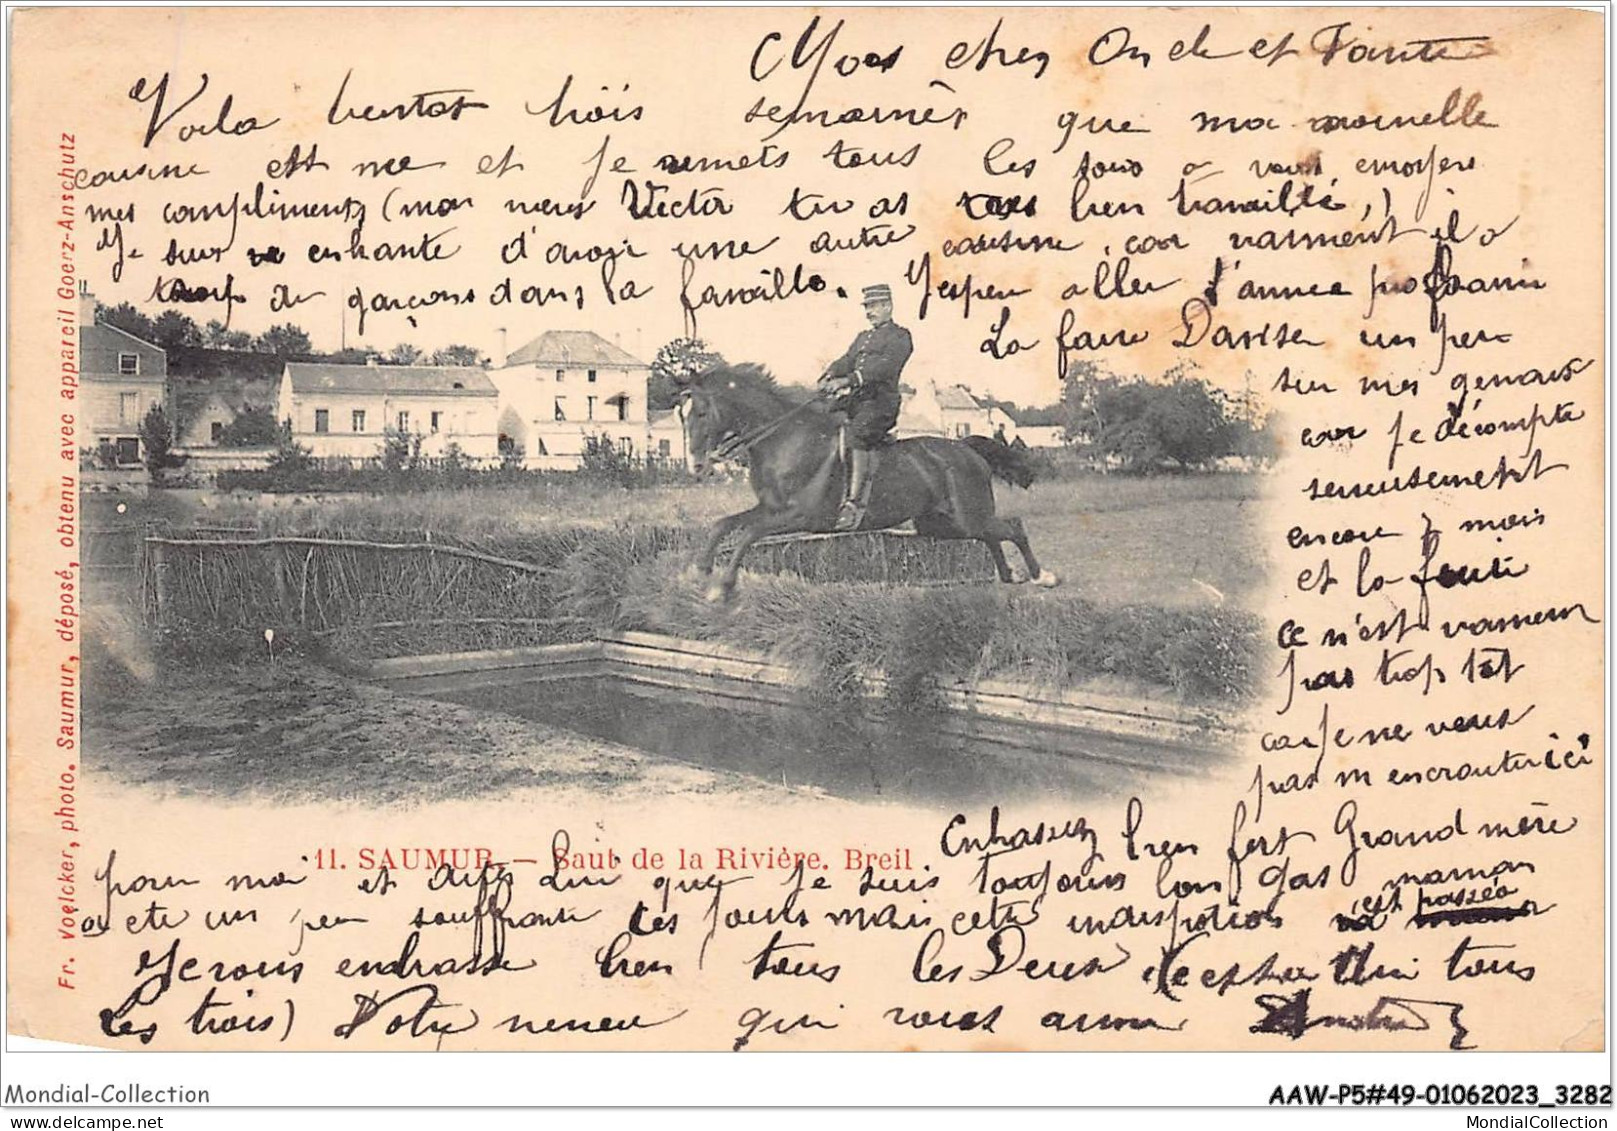 Mes chers Oncle et Tante
Voila bientot trois semaines que ma nouvelle
cousine est née et je remets tous les jours a vous envoyer
mes compliments (mon vieux Victor tu as bien travaillé,)
Je suis enchanté d'avoir une autre cousine, car vraiment il y a
trop de garçons dans la famille. J'espère aller l'année prochaine
La faire Danser un peu
sur mes genoux
car je décompte
serieusement
encore 7 mois
et la fuite
ce n'est vraiment
pas trop tôt
car je ne veux
pas m'encrouter ici
Embrassez bien fort Grand mère
pour moi et dites lui que je suis toujours bon gas maman
a ete un peu souffrante ces jours mais cette indisposition est passée
Je vous embrasse bien tous les Deux (c'est à dire tous
les trois) Votre neveu qui vous aime André
11. SAUMUR. — Saut de la Rivière. Breil
Fr. Voelcker, photo. Saumur, déposé, obtenu avec appareil Goerz-Anschutz
Mondial-Collection
AAW-P5#49-01062023_3282
MondialCollection